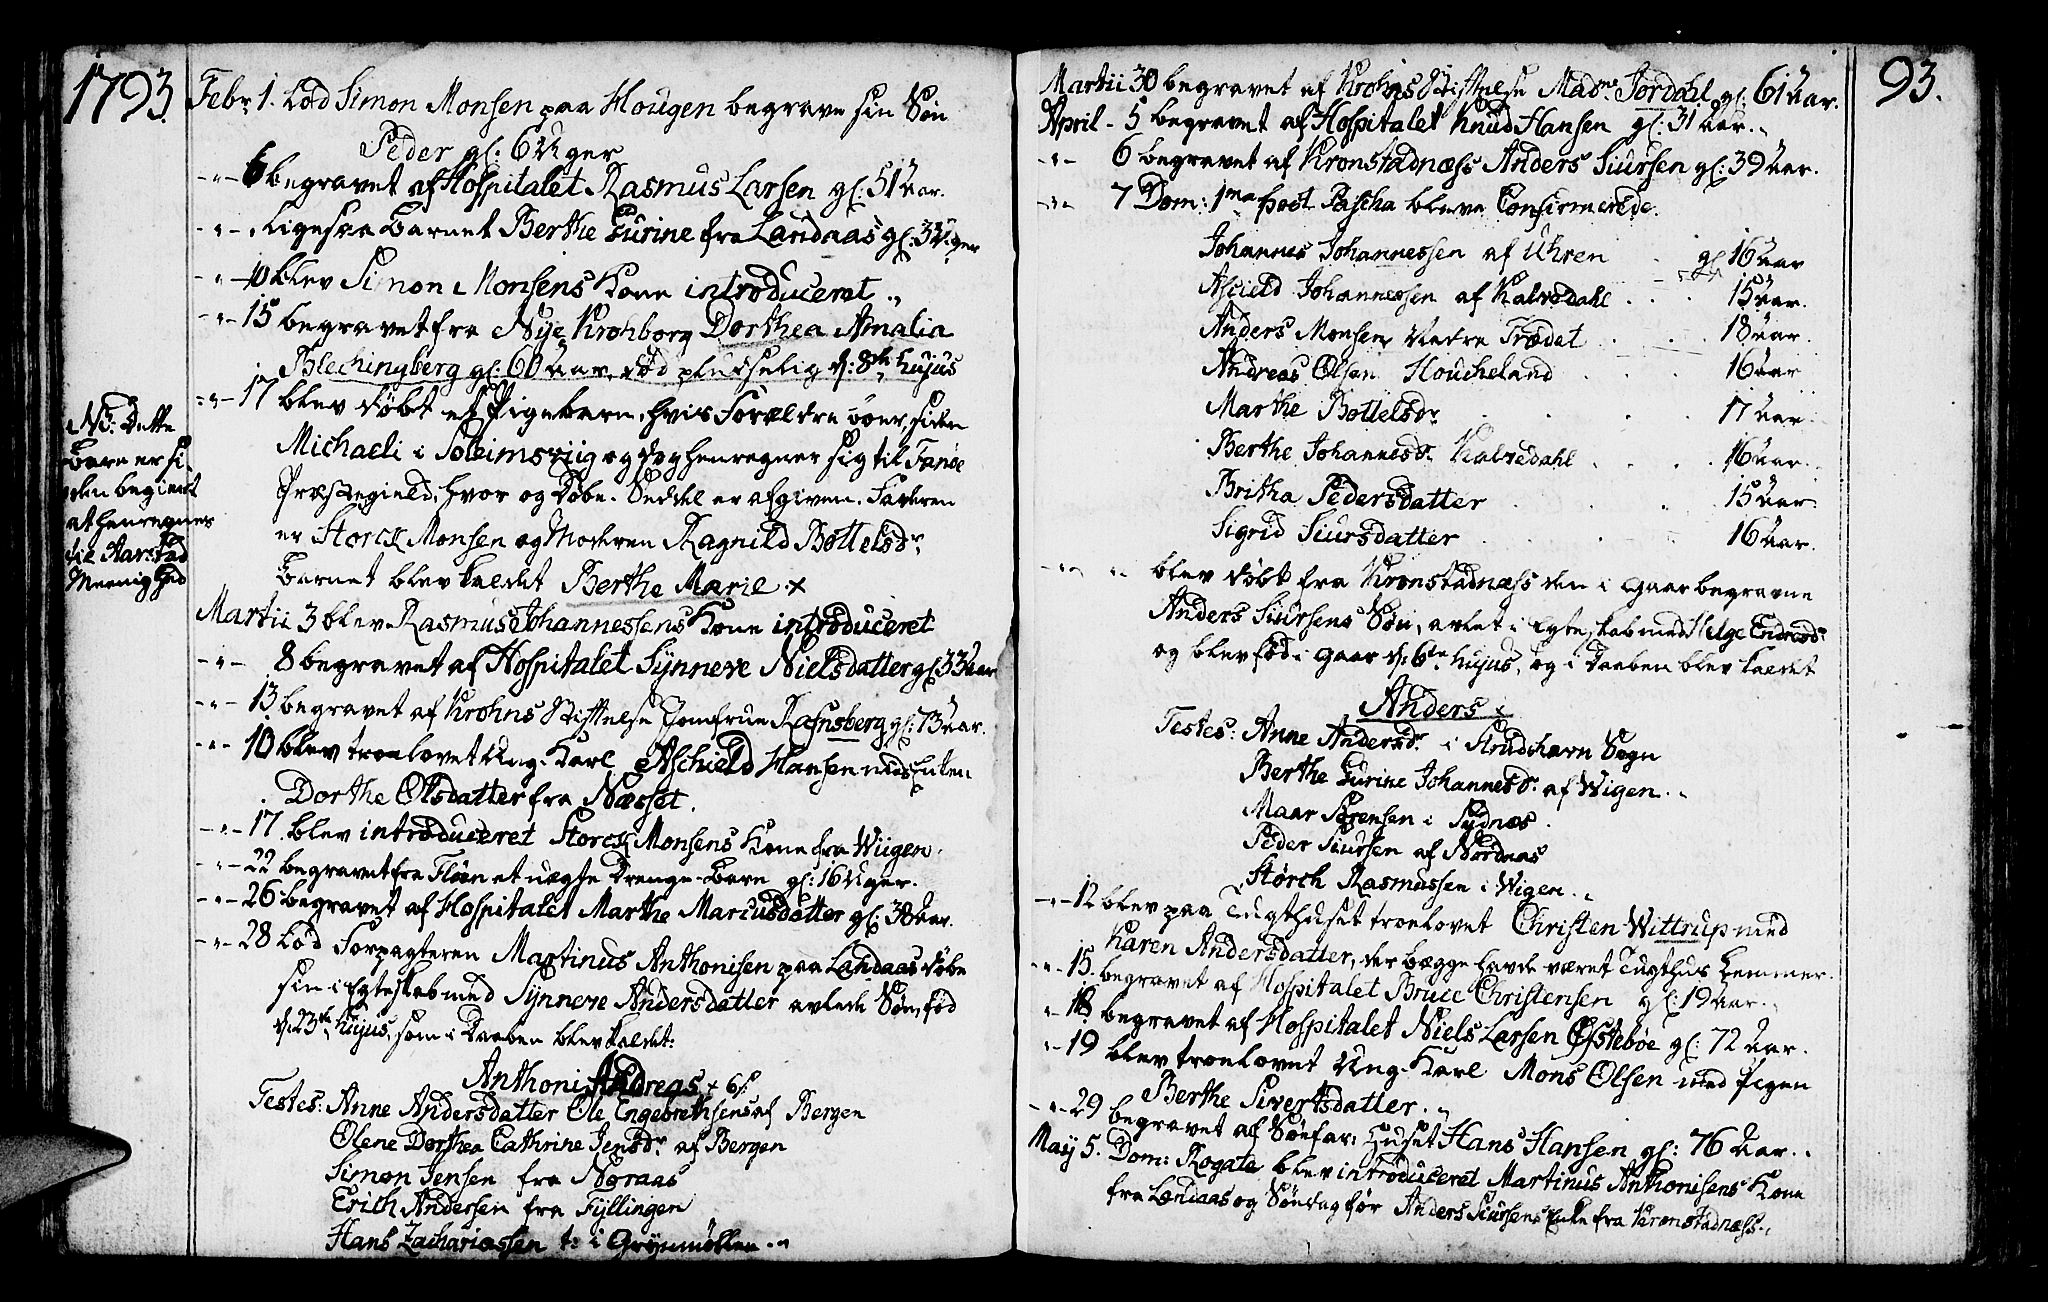 1793.
Febr. 1. Lod Simon Monsen paa Hougen begrave sin Søn
Peder gl: 6 Uger
-"- 6 begravet af Hospitalet Rasmus Larsen gl: 51 Aar.
-"- Ligesaa Barnet Berthe Gurine fra Landaas gl: 3 Uger
-"- 10 blev Simon Monsens Kone introduceret.
-"- 15 begravet fra Nye Krohborg Dorthea Amalia
Blechingberg gl: 60 Aar, død pludselig d: 8de hujus
-"- 17 blev døbt et Pigebarn, hvis Forældre boer, siden
Michaeli i Soleimsviig og dog henregner sig til Fanøe
Præstegield, hvor og Døbe-Seddel er afgiven. Faderen
er Storck Monsen og Moderen Ragnild Bottelsdr.
Barnet blev kaldet Berthe Marie +
NB: Dette
Barn er si-
den begiert
at henregnes
til Aarstad
Meenighed
Martii 3 blev Rasmus Johannessens Kone introduceret
-"- 8 begravet af Hospitalet Synneve Nielsdatter gl: 33 Aar
-"- 13 begravet af Krohns Stiftelse Jomfrue Rafnsberg gl: 73 Aar.
-"- 10 blev troelovet Ung-Karl Aschield Hansen med Enken
Dorthe Olsdatter fra Næsset.
-"- 17 blev introduceret Storck Monsens Kone fra Wiigen.
-"- 22 begravet fra Fløen et uægte Drenge-Barn gl: 16 Uger.
-"- 26 begravet af Hospitalet Marthe Marcusdatter gl: 38 Aar.
-"- 28 Lod Forpagteren Martinus Anthonisen paa Landaas døbe
sin i Egteskab med Synneve Andersdatter avlede Søn, fød
d: 23de hujus, som i Daaben blev kaldet:
Anthoni Andreas +
Testes: Anne Andersdatter Ole Engebrethsens af Bergen
Olene Dorthea Cathrine Jensdr. af Bergen
Simon Jensen fra Noraas
Erich Andersen fra Fyllingen
Hans Zachariassen t: i Grynmøllen.
93.
Martii 30 begravet af Krohns Stiftelse Madme Jordahl gl: 61 Aar.
April - 5 begravet af Hospitalet Knud Hansen gl: 31 Aar.
-"- 6 begravet af Kronstadnæss Anders Siursen gl: 39 Aar.
-"- 7 Dom: 1ma post Pascha bleve Confirmerede.
Johannes Johannessen af Uhren gl 16 Aar
Ascield Johannessen af Kalvedahl 15 Aar.
Anders Monsen Nedre Trædet 18 Aar.
Andreas Olsen Houcheland 16 Aar
Marthe Bottelsdr. 17 Aar.
Berthe Johannesdr. Kalvedahl 16 Aar.
Britha Pedersdatter 15 Aar.
Sigrid Siursdatter 16 Aar.
-"- "- blev døbt fra Kronstadnæss den i Gaar begravne
Anders Siursens Søn, avlet i Egteskab med Helge Endresdr.
og blev fød i Gaar d: 6te hujus, og i Daaben blev kaldet
Anders +
Testes: Anne Andersdr. i Strudshavn Sogn
Berthe Gurine Johannesdr. af Wigen.
Maar Sørensen i Sydnæs.
Peder Siursen af Nordnæs
Størch Rasmussen i Wigen.
-"- 12 blev paa Tugthuset troelovet Christen Wittrup med
Karen Andersdatter, der begge havde været Tugthus Lemmer.
-"- 15. begravet af Hospitalet Christensen gl: 19 Aar.
-"- 18 begravet af Hospitalet Niels Larsen Østebøe gl: 72 Aar.
-"- 19 blev troelovet Ung-Karl Mons Olsen med Pigen
Berthe Sivertsdatter.
-"- 29 begravet af Søefar: Huset Hans Hansen gl: 76 Aar.
May 5. Dom: Rogate blev introduceret Martinus Anthonisens Kone
fra Landaas og Søndag før Anders Siursens Enke fra Kronstadnæss.